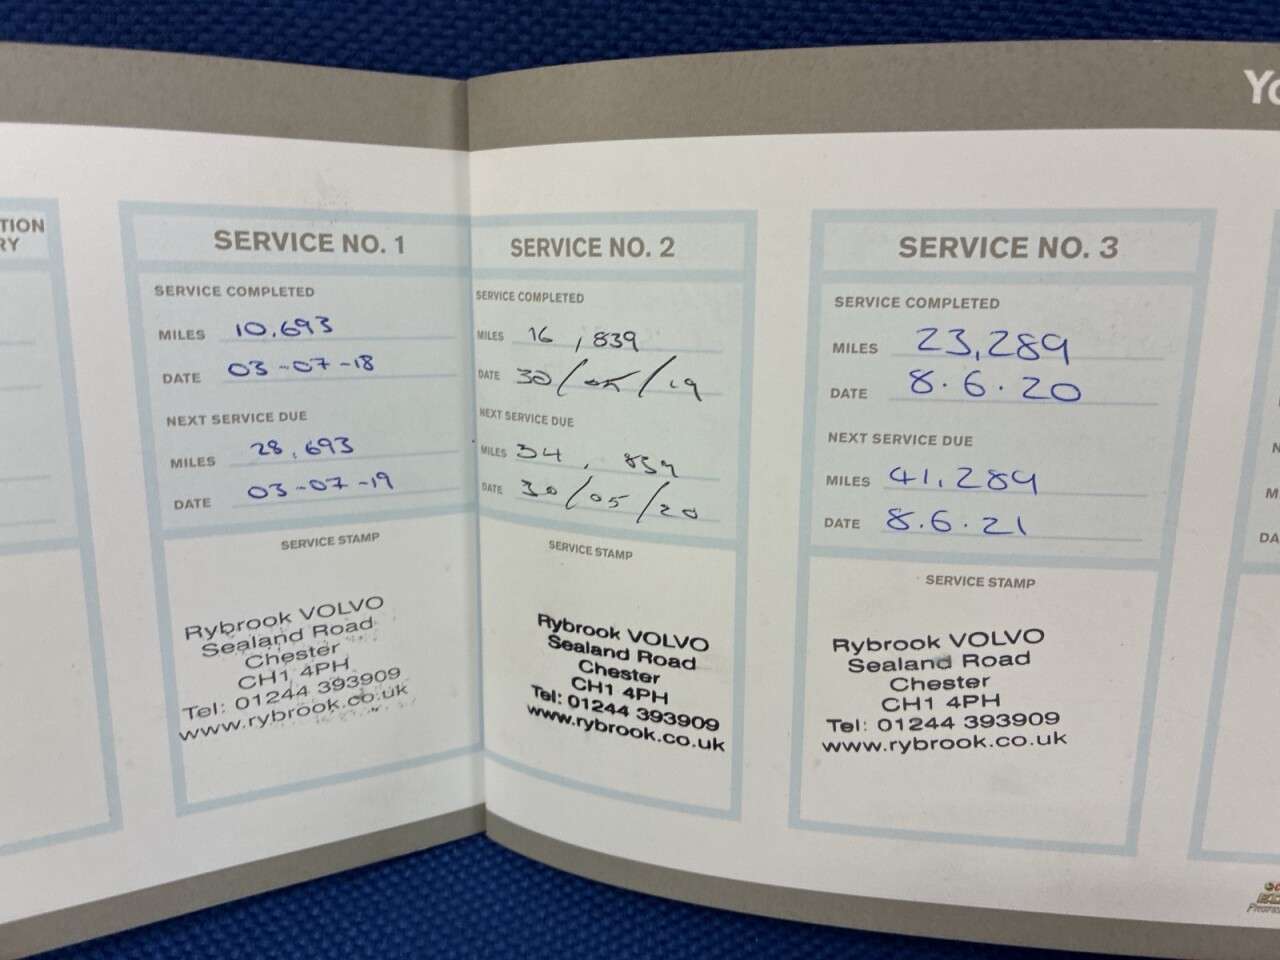 Yo
TION
RY
SERVICE NO. 1
SERVICE COMPLETED
MILES 10,693
DATE 03-07-18
NEXT SERVICE DUE
MILES 28,693
DATE 03-07-19
SERVICE STAMP
Rybrook VOLVO
Sealand Road
Chester
CH1 4PH
Tel: 01244 393909
www.rybrook.co.uk
SERVICE NO. 2
SERVICE COMPLETED
MILES 16,839
DATE 30/05/19
NEXT SERVICE DUE
MILES 34,839
DATE 30/05/20
SERVICE STAMP
Rybrook VOLVO
Sealand Road
Chester
CH1 4PH
Tel: 01244 393909
www.rybrook.co.uk
SERVICE NO. 3
SERVICE COMPLETED
MILES 23,289
DATE 8.6.20
NEXT SERVICE DUE
MILES 41,289
DATE 8.6.21
SERVICE STAMP
Rybrook VOLVO
Sealand Road
Chester
CH1 4PH
Tel: 01244 393909
www.rybrook.co.uk
N
M
DA